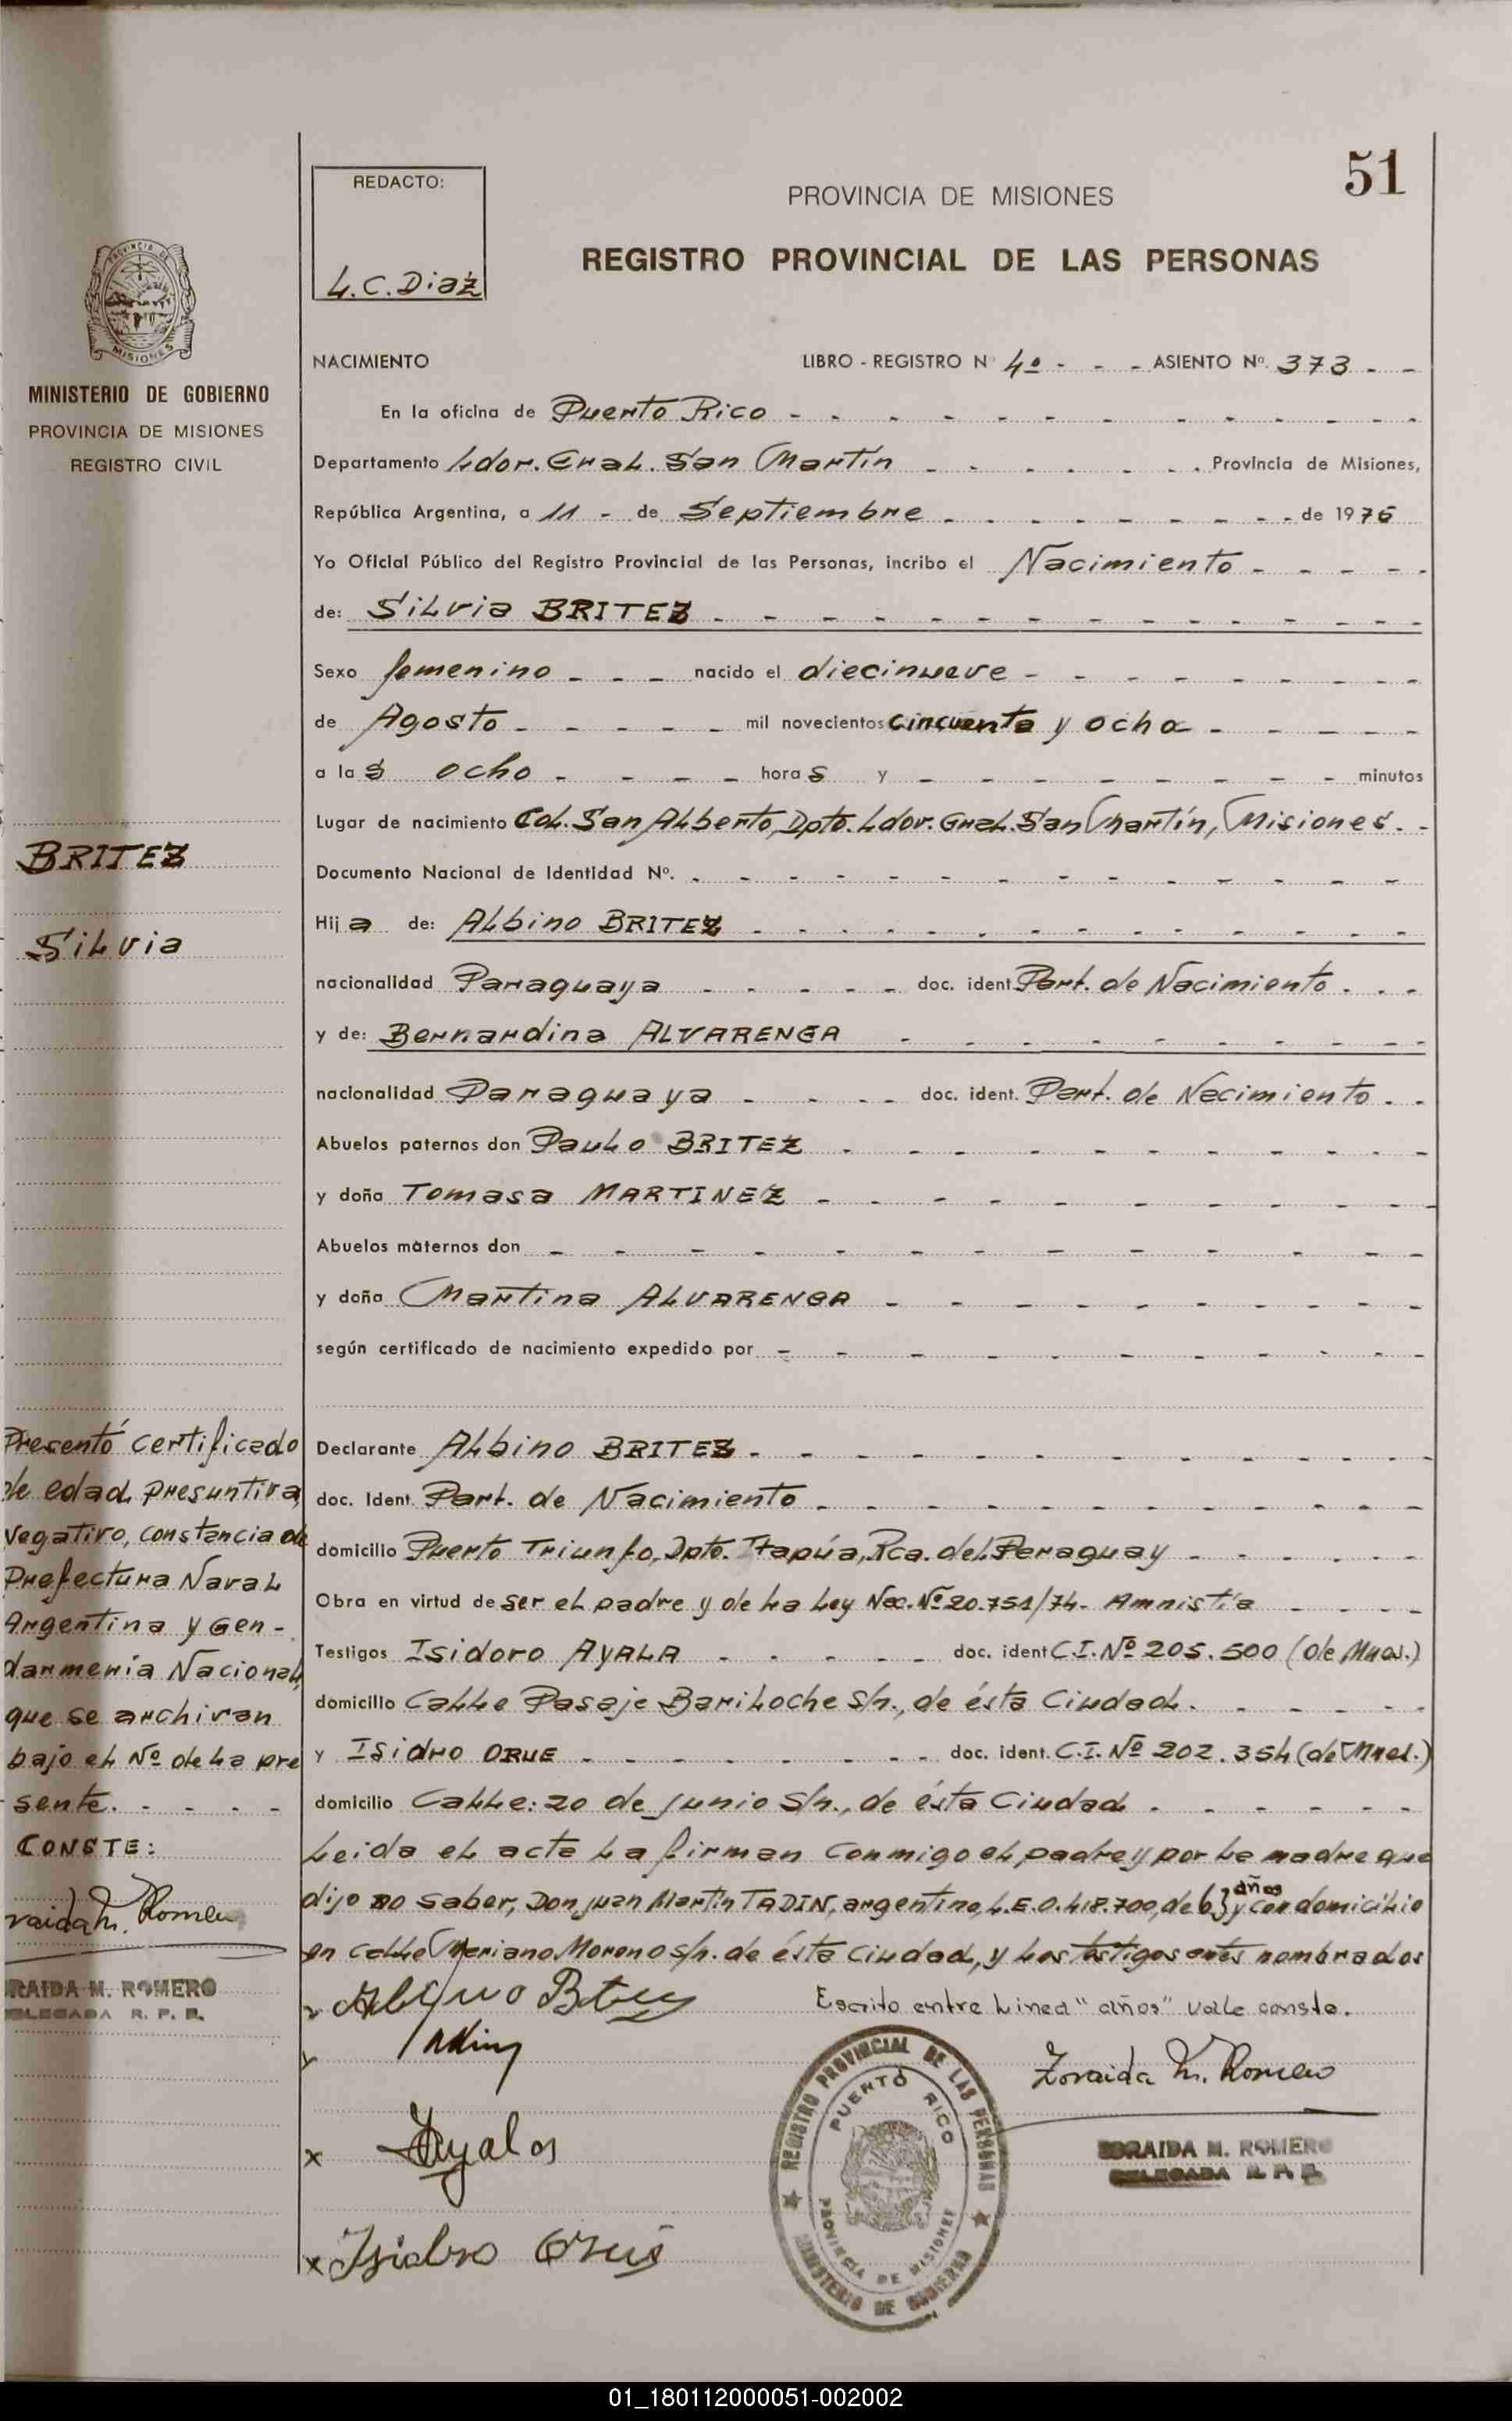 51
REDACTO:
L.C. Diaz
PROVINCIA DE MISIONES
REGISTRO PROVINCIAL DE LAS PERSONAS
PROVINCIA DE
MISIONES
MINISTERIO DE GOBIERNO
PROVINCIA DE MISIONES
REGISTRO CIVIL
NACIMIENTO LIBRO - REGISTRO N° 4º - - - ASIENTO Nº. 373 - -
En la oficina de Puerto Rico
Departamento Ldor. Gral. San Martín Provincia de Misiones,
República Argentina, a 11 - de Septiembre de 1976
Yo Oficial Público del Registro Provincial de las Personas, incribo el Nacimiento
de: Silvia BRITEZ
Sexo femenino nacido el diecinueve
de Agosto mil novecientos cincuenta y ocho
a las ocho horas y minutos
Lugar de nacimiento Col. San Alberto, Dpto. Ldor. Gral. San Martín, Misiones.
Documento Nacional de Identidad Nº.
Hija de: Albino BRITEZ
nacionalidad Paraguaya doc. ident. Part. de Nacimiento
y de: Bernardina ALVARENGA
nacionalidad Paraguaya doc. ident. Part. de Nacimiento
Abuelos paternos don Paulo BRITEZ
y doña Tomasa MARTINEZ
Abuelos maternos don
y doña Martina ALVARENGA
según certificado de nacimiento expedido por
Declarante Albino BRITEZ
doc. Ident. Part. de Nacimiento
domicilio Puerto Triunfo, Dpto. Itapúa, Rca. del Paraguay
Obra en virtud de ser el padre y de la Ley Nac. Nº 20.751/74- Amnistía
Testigos Isidoro AYALA doc. ident C.I. Nº 205.500 (de Mnes.)
domicilio Calle Pasaje Bariloche s/n., de ésta Ciudad.
y Isidro ORUE doc. ident. C.I. Nº 202.354 (de Mnes.)
domicilio Calle: 20 de junio s/n., de ésta Ciudad
Leida el acta la firman conmigo el padre y por la madre que
dijo no saber, Don Juan Martín TADIN, argentino, L.E. 0.418.700, de 63 años y con domicilio
en calle Mariano Moreno s/n. de ésta Ciudad, y los testigos antes nombrados
Escrito entre linea "años" vale conste.
BRITEZ
Silvia
Presentó certificado
de edad presuntiva
Negativo, constancia de
Prefectura Naval
Argentina y Gen-
darmería Nacional,
que se archivan
bajo el Nº de la pre
sente.
CONSTE:
raida M. Romero
RAIDA M. ROMERO
DELEGADA R. P. P.
x Ayala
x Isidro Orué
Zoraida M. Romero
ZORAIDA M. ROMERO
DELEGADA R. P. P.
REGISTRO PROVINCIAL DE LAS PERSONAS
PUERTO RICO
PROVINCIA DE MISIONES
MINISTERIO DE GOBIERNO
01_180112000051-002002